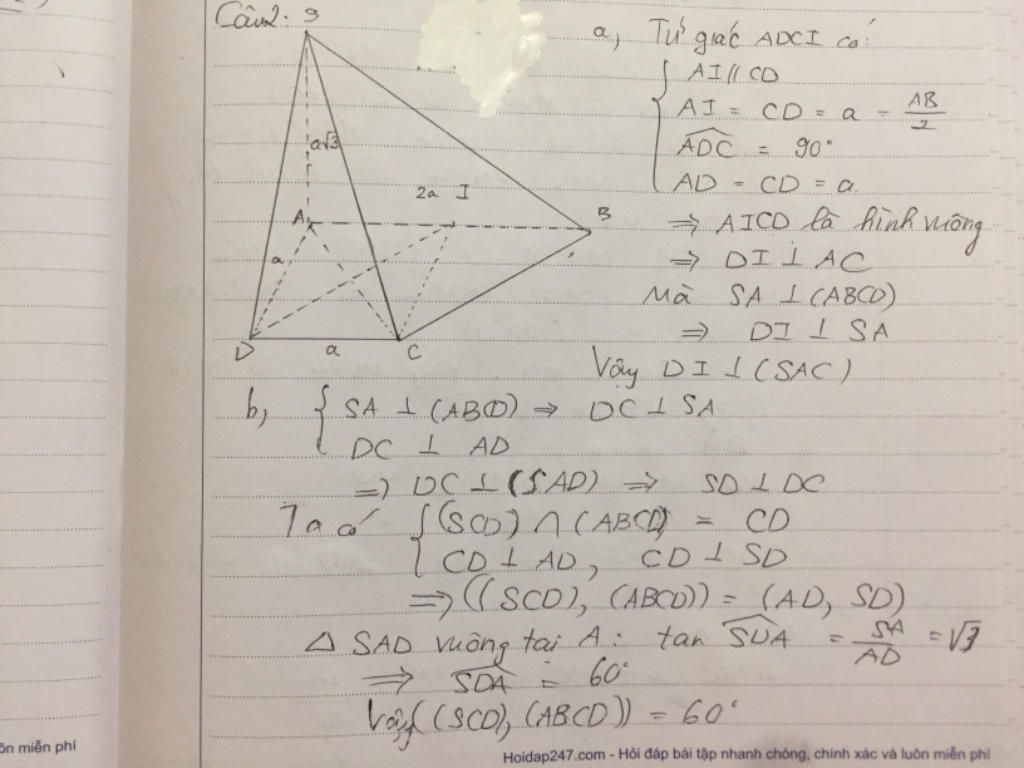 Câu 2:
S
a√3
2a
I
A
B
a
D
a
C
a, Tứ giác ADCI có:
AI // CD
AI = CD = a = AB/2
ADC = 90°
AD = CD = a.
⇒ AICD là hình vuông
⇒ DI ⊥ AC
Mà SA ⊥ (ABCD)
⇒ DI ⊥ SA
Vậy DI ⊥ (SAC)
b, { SA ⊥ (ABCD) ⇒ DC ⊥ SA
DC ⊥ AD
⇒ DC ⊥ (SAD) ⇒ SD ⊥ DC
Ta có { (SCD) ∩ (ABCD) = CD
CD ⊥ AD, CD ⊥ SD
⇒ ((SCD), (ABCD)) = (AD, SD)
Δ SAD vuông tại A: tan SDA = SA/AD = √3
⇒ SDA = 60°
Vậy ((SCD), (ABCD)) = 60°
ôn miễn phí
Hoidap247.com - Hỏi đáp bài tập nhanh chóng, chính xác và luôn miễn phí